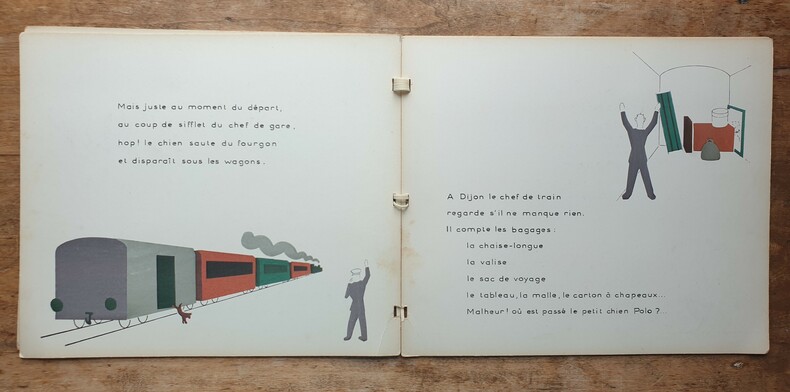 Mais juste au moment du départ,
au coup de sifflet du chef de gare,
hop! le chien saute du fourgon
et disparaît sous les wagons.
A Dijon le chef de train
regarde s'il ne manque rien.
Il compte les bagages:
la chaise-longue
la valise
le sac de voyage
le tableau, la malle, le carton à chapeaux...
Malheur! où est passé le petit chien Polo?